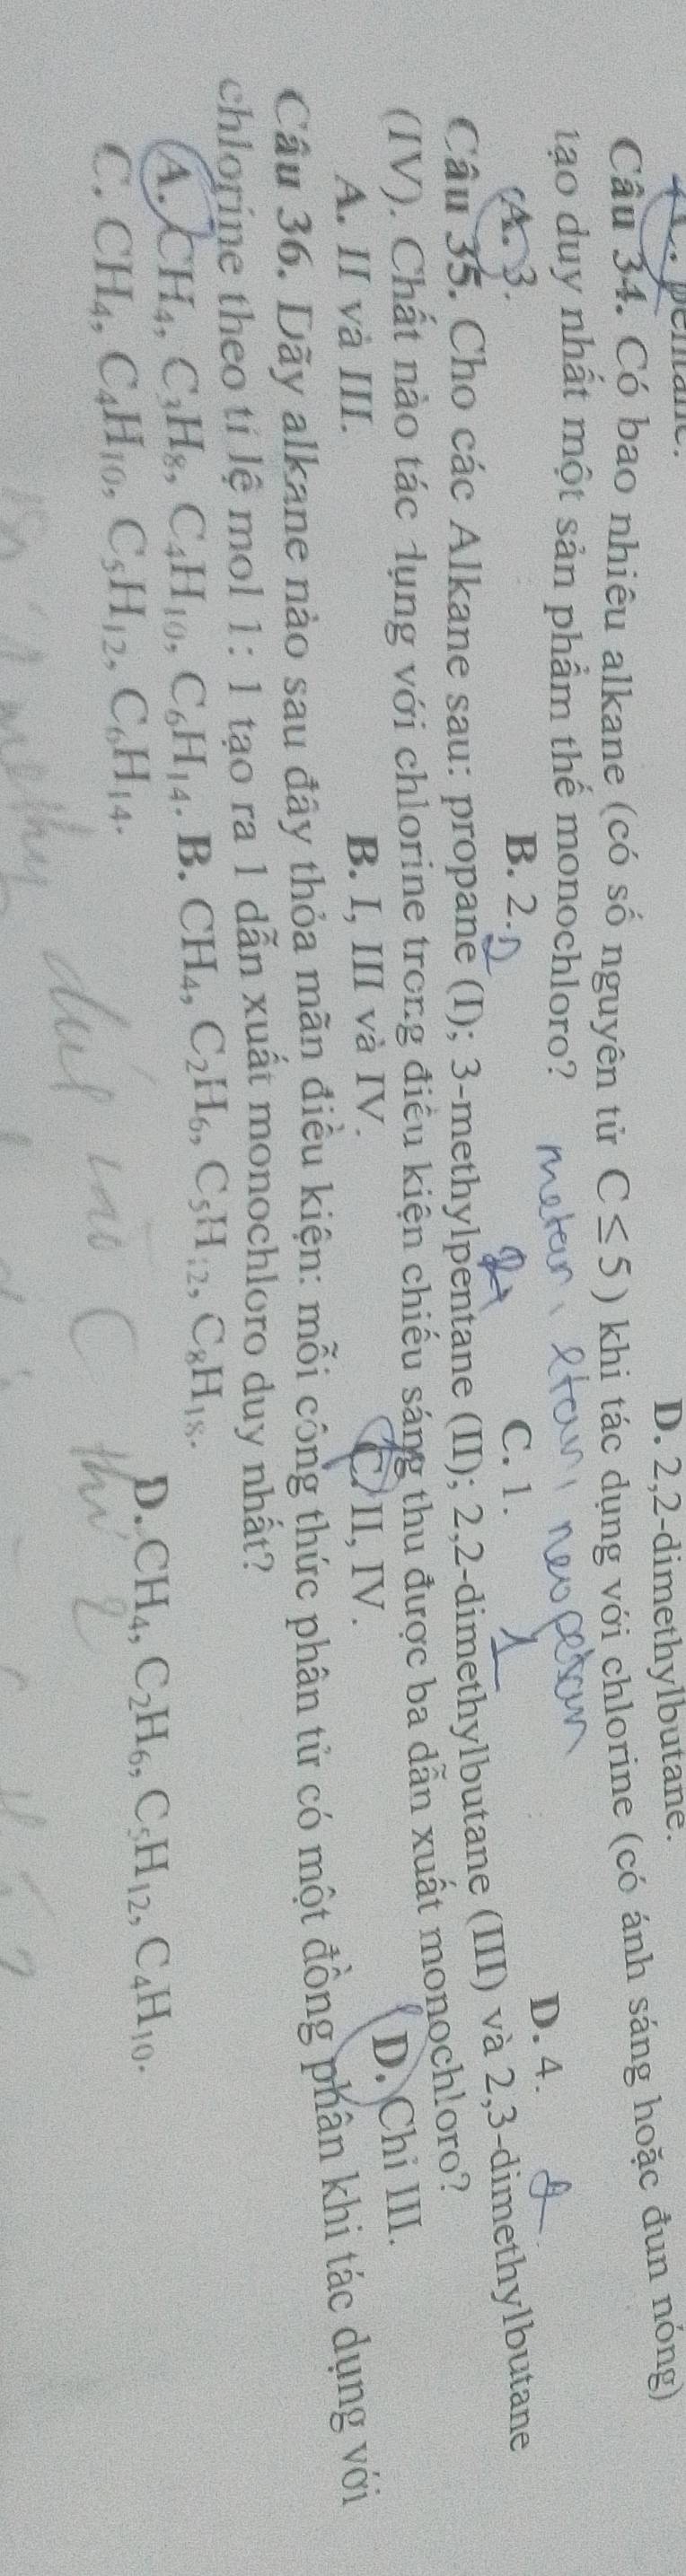 D. 2,2-dimethylbutane.
Câu 34. Có bao nhiêu alkane (có số nguyên tử C ≤ 5 ) khi tác dụng với chlorine (có ánh sáng hoặc đun nóng)
tạo duy nhất một sản phẩm thế monochloro? metan, etan, neopetan
A. 3. B. 2. C. 1. D. 4.
Câu 35. Cho các Alkane sau: propane (I); 3-methylpentane (II); 2,2-dimethylbutane (III) và 2,3-dimethylbutane
(IV). Chất nào tác dụng với chlorine trong điều kiện chiếu sáng thu được ba dẫn xuất monochloro?
A. II và III. B. I, III và IV. C. II, IV . D. Chỉ III.
Câu 36. Dãy alkane nào sau đây thỏa mãn điều kiện: mỗi công thức phân tử có một đồng phân khi tác dụng với
chlorine theo tỉ lệ mol 1: 1 tạo ra 1 dẫn xuất monochloro duy nhất?
A. CH₄, C₃H₈, C₄H₁₀, C₆H₁₄. B. CH₄, C₂H₆, C₅H₁₂, C₈H₁₈.
C. CH₄, C₄H₁₀, C₅H₁₂, C₆H₁₄. D. CH₄, C₂H₆, C₅H₁₂, C₄H₁₀.
C thứ 2